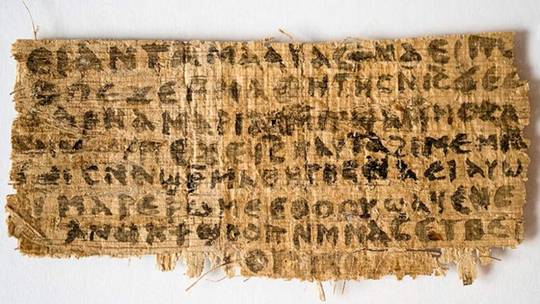 ⲉⲓ ⲁⲛ ⲧⲁⲙⲁⲁⲩ ⲁⲥϯ ⲛⲁⲉⲓ ⲡ
ⲡⲉϫⲉ ⲙⲙⲁⲑⲏⲧⲏⲥ ⲛⲓⲥ ϫⲉ ⲥ
ⲁⲣⲛⲁ ⲙⲁⲣⲓⲁⲙ ⲙⲡϣⲁ ⲙⲙⲟⲥ ⲁ
ⲡⲉϫⲉ ⲓⲥ ⲛⲁⲩ ⲧⲁϩⲓⲙⲉ ⲙⲛ
ⲥⲛⲁϣⲣⲙⲁⲑⲏⲧⲏⲥ ⲛⲁⲉⲓ ⲁⲩⲱ
ⲙⲁⲣⲉⲣⲱⲙⲉ ⲉⲑⲟⲟⲩ ϣⲁϥⲉ ⲛⲉ
ⲁⲛⲟⲕ ϯϣⲟⲟⲡ ⲛⲙⲙⲁⲥ ⲉⲧⲃⲉ